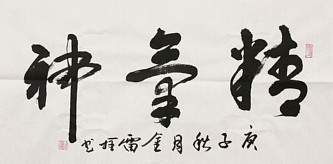 精氣神
庚子秋月金雷